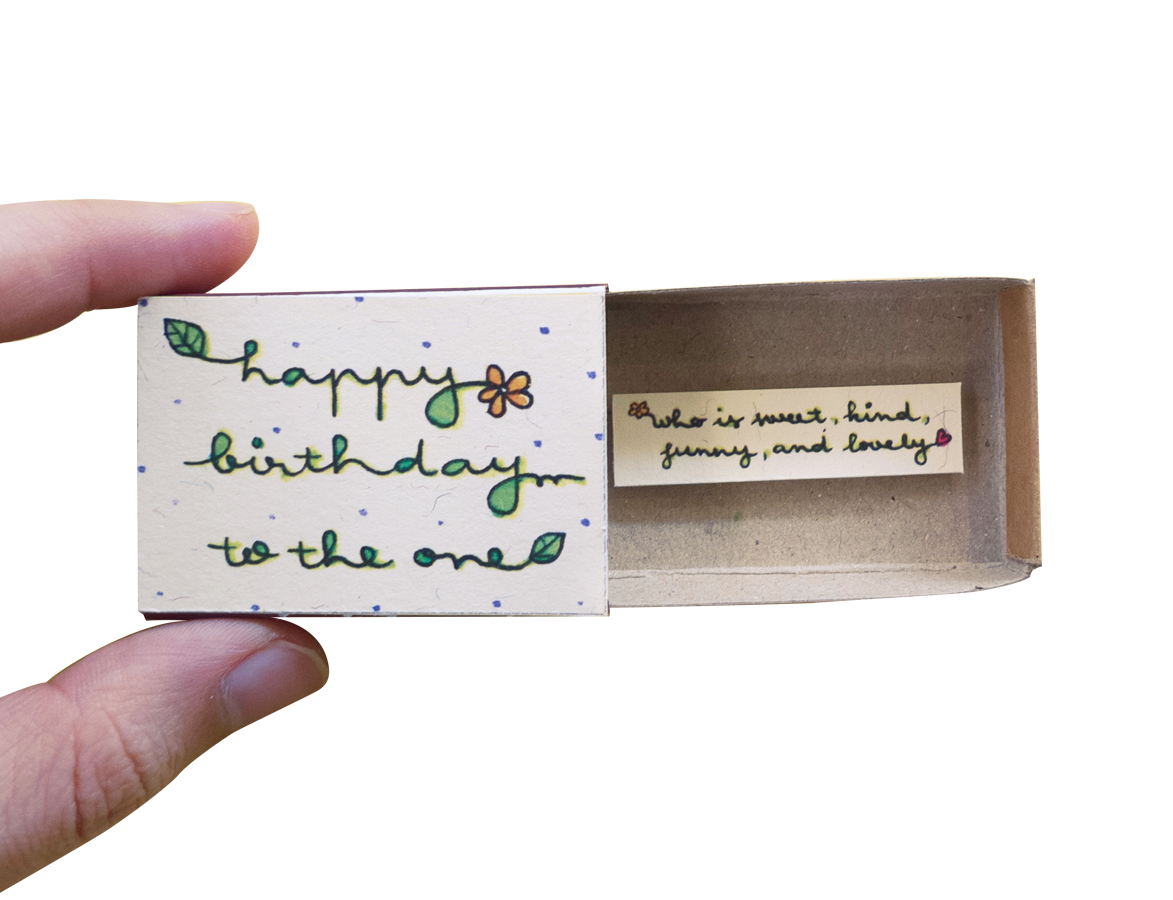 happy
birthday
to the one
who is sweet, kind,
funny, and lovely